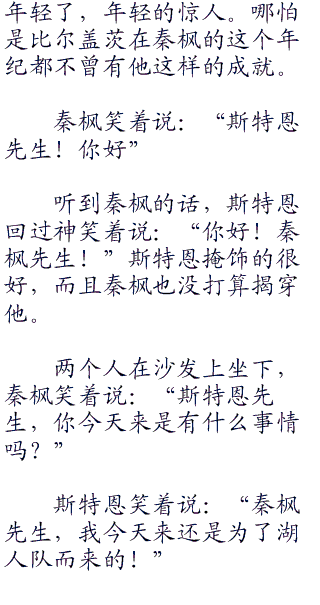 年轻了，年轻的惊人。哪怕
是比尔盖茨在秦枫的这个年
纪都不曾有他这样的成就。
秦枫笑着说：“斯特恩
先生！你好”
听到秦枫的话，斯特恩
回过神笑着说：“你好！秦
枫先生！”斯特恩掩饰的很
好，而且秦枫也没打算揭穿
他。
两个人在沙发上坐下，
秦枫笑着说：“斯特恩先
生，你今天来是有什么事情
吗？”
斯特恩笑着说：“秦枫
先生，我今天来还是为了湖
人队而来的！”